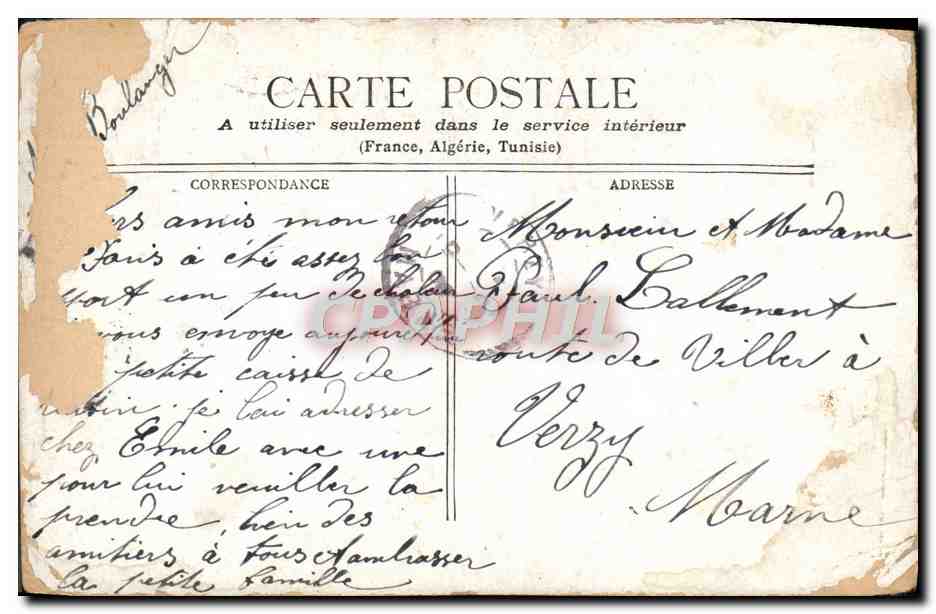 Boulanger
CARTE POSTALE
A utiliser seulement dans le service intérieur
(France, Algérie, Tunisie)
CORRESPONDANCE
amis mon retour
Paris à été assez bon
un peu de chaleur
vous envoye aujourd'hui
petite caisse de
je lai adresser
chez Emile avec une
pour lui veuiller la
prendre, bien des
amitiers à tous et ambrasser
la petite famille
ADRESSE
Monsieur et Madame
Paul Lallement
route de Viller à
Verzy
Marne
CPAPHIL